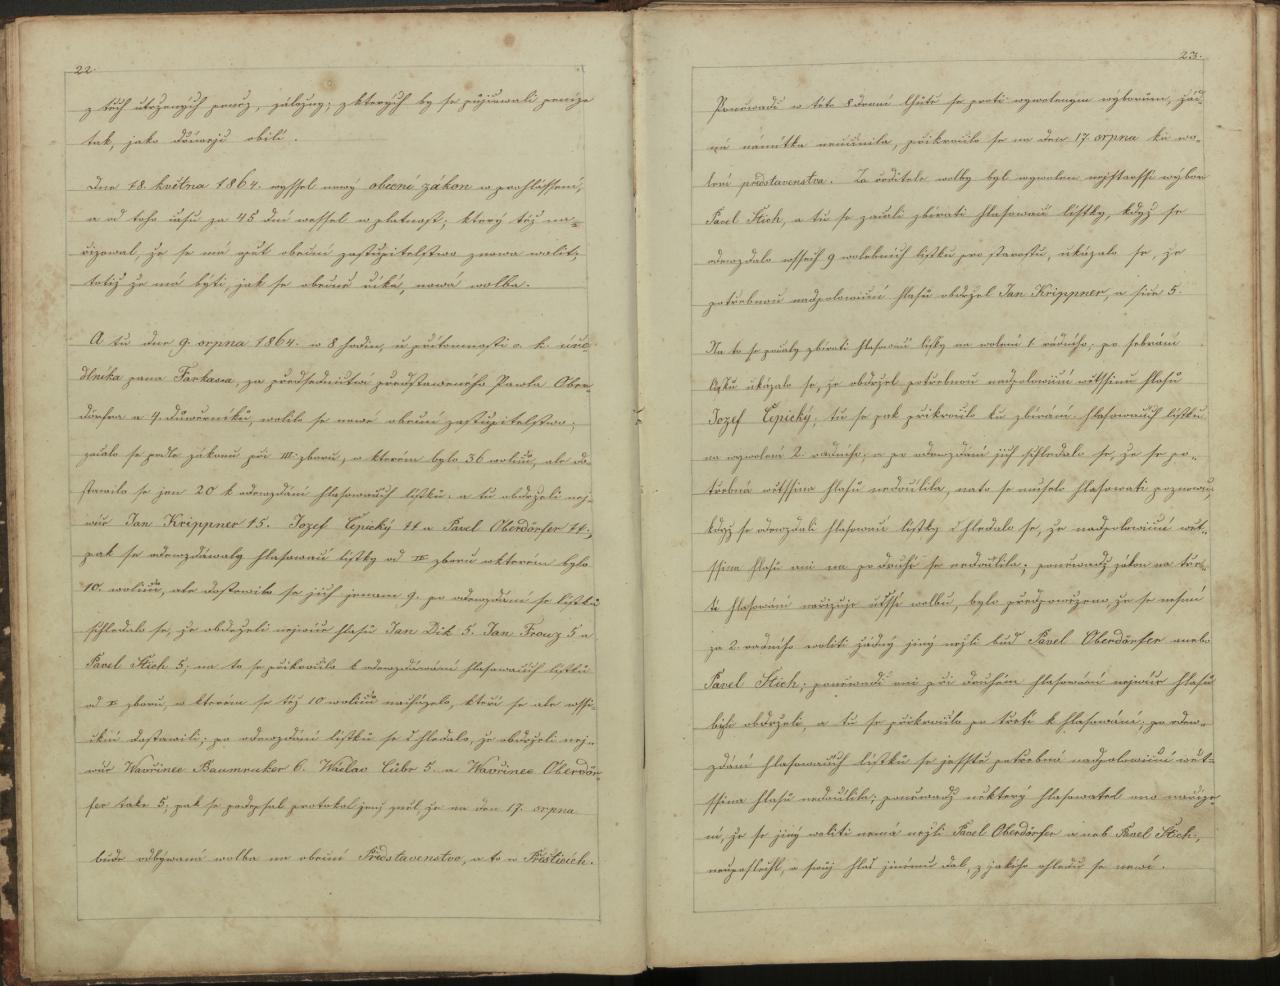 22.
z těch utržených peněz, záložny; z kterých by se půjčowali peníze
tak, jako dříweji obilí.
Dne 18. května 1864. wyssel nowý obecní zákon w prohlássení,
a od toho času za 45 dní wessel w platnost; který též na=
řizowal, že se má opět obecní zastupitelstwo znowa wolit;
totiž že má býti, jak se obecně říká, nowá wolba.
A tu dne 9. srpna 1864. w 8 hodin, u přítomnosti c. k. úře=
dlníka pana Farkasa, za předsednictwí představeného Pawla Ober=
dörfra a 4. důwěrníků, wolilo se nowé obecní zastupitelstwo;
začalo se podle zákonu při III. sboru, w kterém bylo 36 woličů, ale do=
stawilo se jen 20 k odewzdání hlasowacích lístků: a tu obdrželi nej=
wíce Jan Krippner 15. Jozef Cepický 11 a Pavel Oberdörfer 11;
pak se odewzdáwaly hlasowací lístky od II sboru w kterém bylo
10. woličů, ale dostawilo se jich jenom 9. po odewzdání se lístků
shledalo se, že obdrželi nejwíce hlasů Jan Dik 5. Jan Frouz 5 a
Pavel Stich 5; na to se přikročilo k odewzdáwání hlasowacích lístků
od I sboru, w kterém se též 10 woličů nacházelo, kteří se ale wssi=
ckni dostawili; po odewzdání lístků se shledalo, že obdrželi nej=
wíce Wavřinec Baumruker 6. Wáclav Cúbr 5. a Wavřinec Oberdör=
fer take 5; pak se podepsal protokol jenž zněl, že na den 17. srpna
bude odbýwaná wolba na obecní Představenstvo, a to w Přesticích.
23.
Poněwadž w této 8 denní lhůtě se proti wywoleným wýborům, žád=
ná námitka neučinila, přikročilo se na den 17. srpna ku wo=
lení představenstva. Za ředitele wolby byl wywolen nejstarssí wýbor
Pavel Stich, a tu se začali zbírati hlasowací lístky, když se
odewzdalo wssech 9 wolebních lístků pro starostu, ukázalo se, že
potřebnou nadpolowiční hlasů obdržel Jan Krippner, a sice 5.
Na to se počaly zbírati hlasowací lístky na wolení 1 radního; po sebrání
lístků ukázalo se, že obdržel potřebnou nadpolowiční wětssinu hlasů
Jozef Cepický; tu se pak přikročilo ku zbírání hlasowacích lístků
na wywolení 2. radního; a po odewzdání jich shledalo se, že se po=
třebná wětssina hlasů nedocílila, na to se muselo hlasowati poznowu;
když se odewzdali hlasowací lístky shledalo se, že nadpolowiční wět=
ssina hlasů ani na po druhé se nedocílila; poněwadž zákon na tře=
tí hlasowání nařizuje užssí wolbu, bylo předpowězeno, že se nesmí
za 2. radního woliti žádný jiný nežli buď Pavel Oberdörfer anebo
Pavel Stich; poněwadž oni při druhém hlasowání nejwíce hlasů
byli obdrželi, a tu se přikročilo po třetí k hlasowání; po odew=
zdání hlasowacích lístků se jesstě potřebná nadpolowiční wět=
ssina hlasů nedocílila; poněwadž některý hlasowatel ono naříze=
ní, že se jiný woliti nemá nežli Pavel Oberdörfer a neb Pavel Stich,
neuposlechl, a swůj hlas jinému dal, z jakého ohledu se newí.